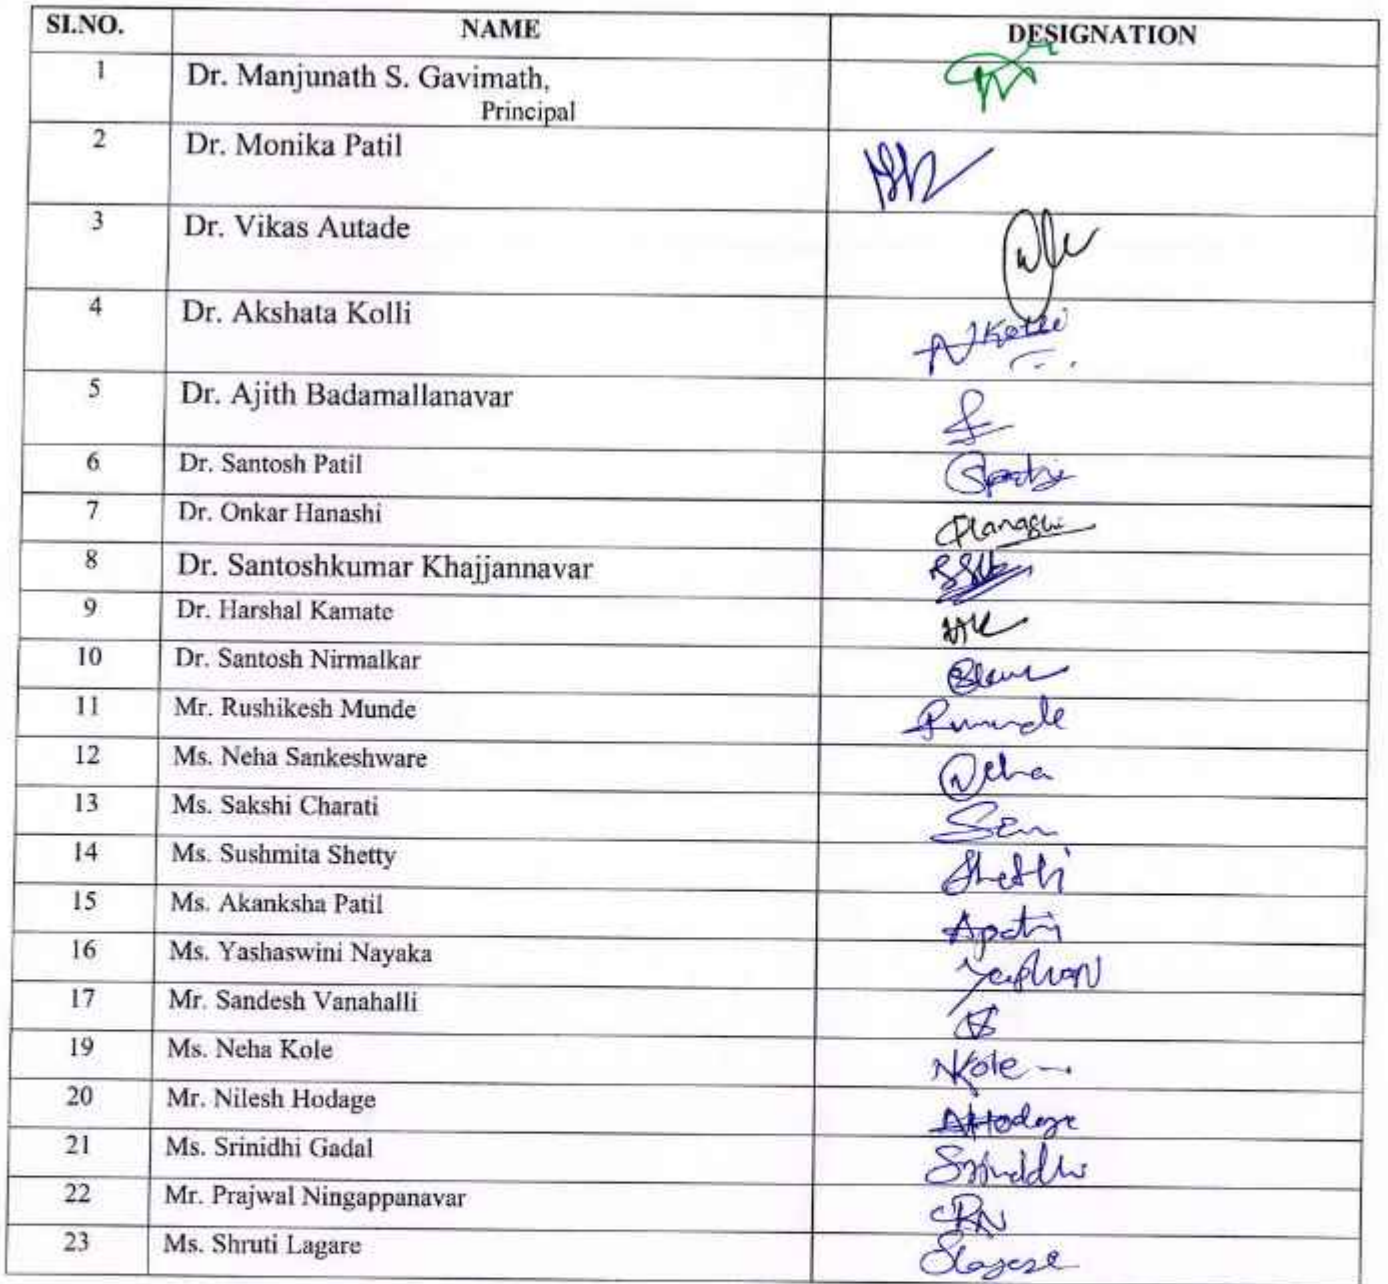 SI.NO. NAME DESIGNATION
1 Dr. Manjunath S. Gavimath,
Principal
2 Dr. Monika Patil
3 Dr. Vikas Autade
4 Dr. Akshata Kolli
5 Dr. Ajith Badamallanavar
6 Dr. Santosh Patil
7 Dr. Onkar Hanashi
8 Dr. Santoshkumar Khajjannavar
9 Dr. Harshal Kamate
10 Dr. Santosh Nirmalkar
11 Mr. Rushikesh Munde Rmunde
12 Ms. Neha Sankeshware Neha
13 Ms. Sakshi Charati
14 Ms. Sushmita Shetty
15 Ms. Akanksha Patil
16 Ms. Yashaswini Nayaka
17 Mr. Sandesh Vanahalli
19 Ms. Neha Kole NKole
20 Mr. Nilesh Hodage
21 Ms. Srinidhi Gadal
22 Mr. Prajwal Ningappanavar
23 Ms. Shruti Lagare